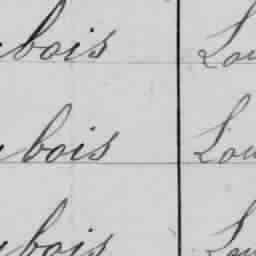 bois Lou
bois Lou
bois Lou